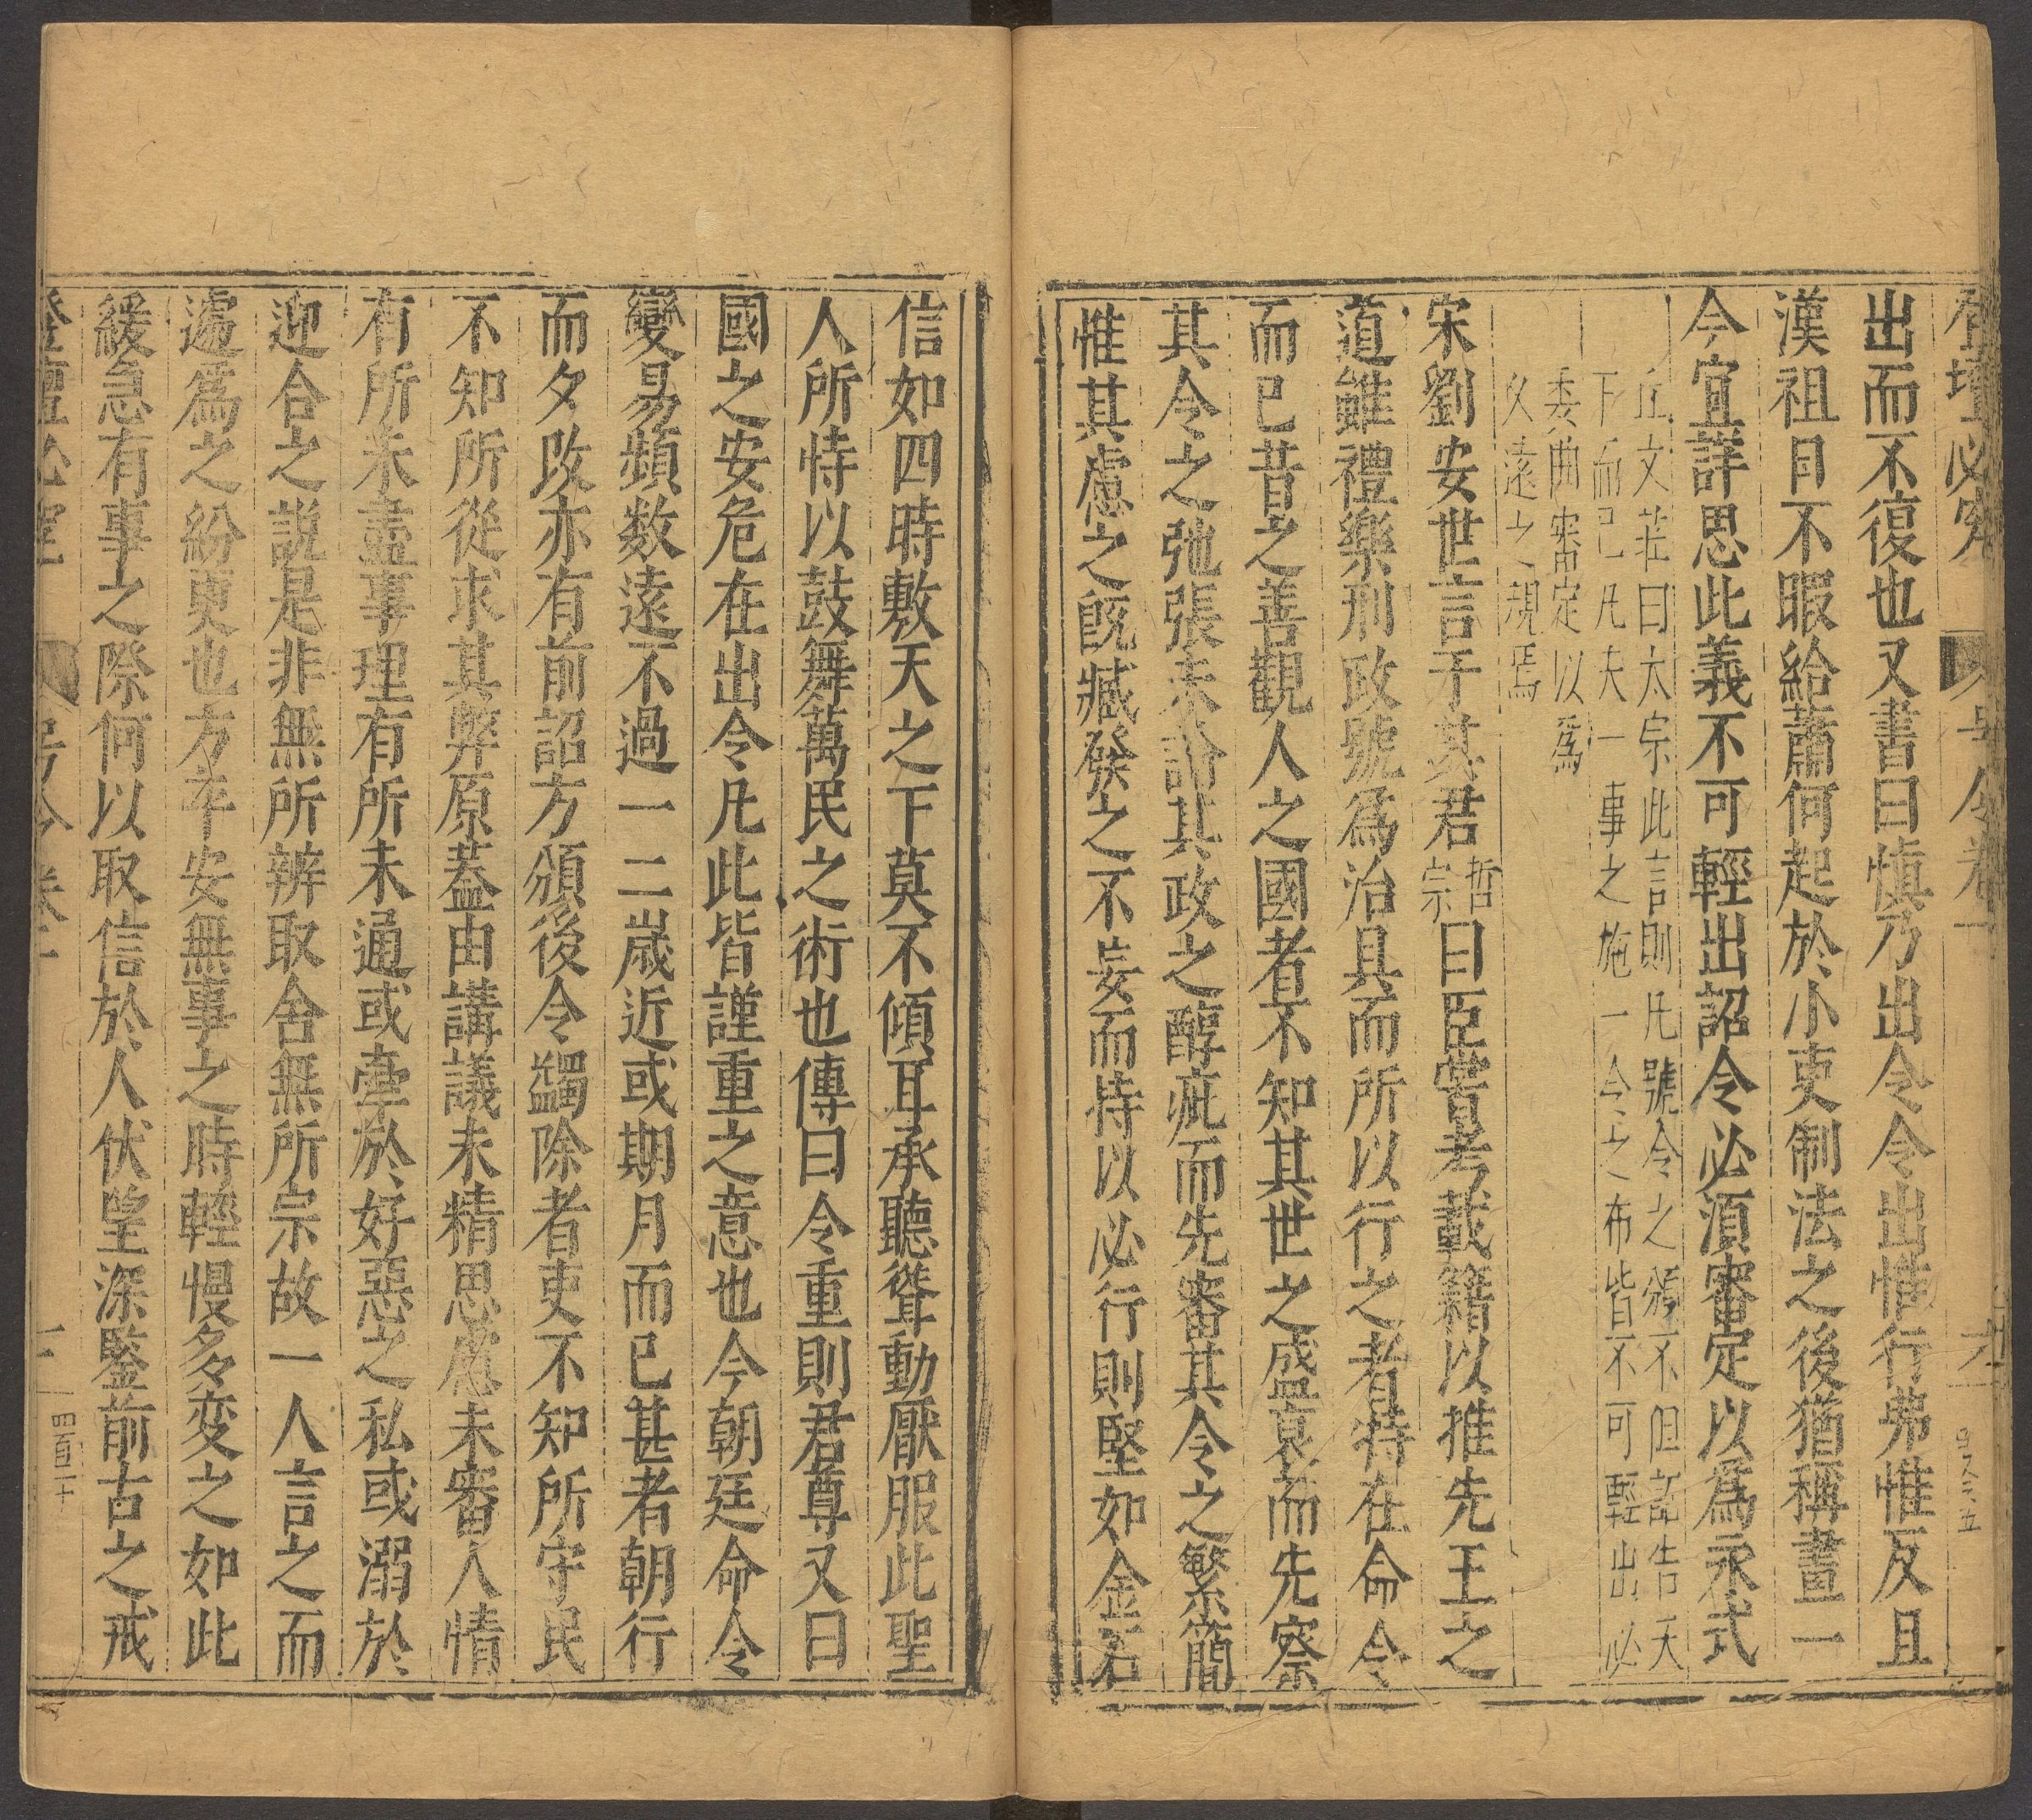 登壇必究 号令卷一
出而不復也又書曰慎乃出令令出惟行弗惟反且
漢祖日不暇給蕭何起於小吏制法之後猶稱畫一
今宜詳思此義不可輕出詔令必須審定以爲永式
丘文莊曰太宗此言則凡號令之頒不但詔告天
下而已凡夫一事之施一令之布皆不可輕出必
委曲審定以爲
久遠之規焉
宋劉安世言于其君哲宗曰臣嘗考載籍以推先王之
道雖禮樂刑政號爲治具而所以行之者特在命令
而已昔之善觀人之國者不知其世之盛衰而先察
其令之弛張未論其政之醇疵而先審其令之繁簡
惟其慮之既臧發之不妄而持以必行則堅如金石
信如四時敷天之下莫不傾耳承聽聳動厭服此聖
人所恃以鼓舞萬民之術也傳曰令重則君尊又曰
國之安危在出令凡此皆謹重之意也今朝廷命令
變易頻数遠不過一二嵗近或期月而已甚者朝行
而夕改亦有前詔方頒後令蠲除者吏不知所守民
不知所從求其弊原葢由講議未精思慮未審人情
有所未盡事理有所未通或牽於好惡之私或溺於
迎合之説是非無所辨取舍無所宗故一人言之而
遽爲之紛更也方平安無事之時輕慢多変之如此
緩急有事之際何以取信於人伏望深鑒前古之戒
登壇必究 号令卷一 四百二十